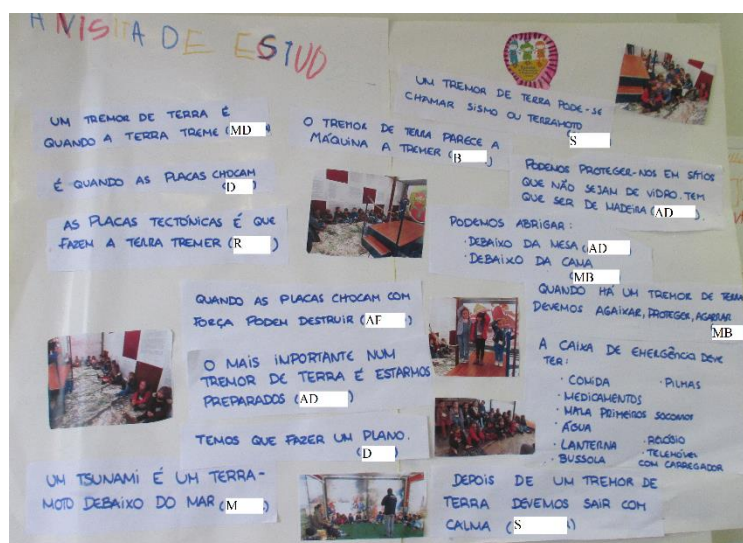 A VISITA DE ESTUD
UM TREMOR DE TERRA É
QUANDO A TERRA TREME (MD)
É QUANDO AS PLACAS CHOCAM
(D)
AS PLACAS TECTÓNICAS É QUE
FAZEM A TERRA TREMER (R)
O TREMOR DE TERRA PARECE A
MÁQUINA A TREMER (B)
UM TREMOR DE TERRA PODE-SE
CHAMAR SISMO OU TERRAMOTO
(S)
PODEMOS PROTEGER-NOS EM SÍTIOS
QUE NÃO SEJAM DE VIDRO. TEM
QUE SER DE MADEIRA (AD)
PODEMOS ABRIGAR:
· DEBAIXO DA MESA (AD)
· DEBAIXO DA CAMA
(MB)
QUANDO AS PLACAS CHOCAM COM
FORÇA PODEM DESTRUIR (AF)
O MAIS IMPORTANTE NUM
TREMOR DE TERRA É ESTARMOS
PREPARADOS (AD)
TEMOS QUE FAZER UM PLANO.
(D)
UM TSUNAMI É UM TERRA-
MOTO DEBAIXO DO MAR (M)
QUANDO HÁ UM TREMOR DE TERRA
DEVEMOS AGAIXAR, PROTEGER, AGARRAR
MB
A CAIXA DE EMERGÊNCIA DEVE
TER:
· COMIDA
· MEDICAMENTOS
· MALA PRIMEIROS SOCORROS
· ÁGUA
· LANTERNA
· BUSSOLA
· PILHAS
· RELÓGIO
· TELEMÓVEL
COM CARREGADOR
DEPOIS DE UM TREMOR DE
TERRA DEVEMOS SAIR COM
CALMA (S)